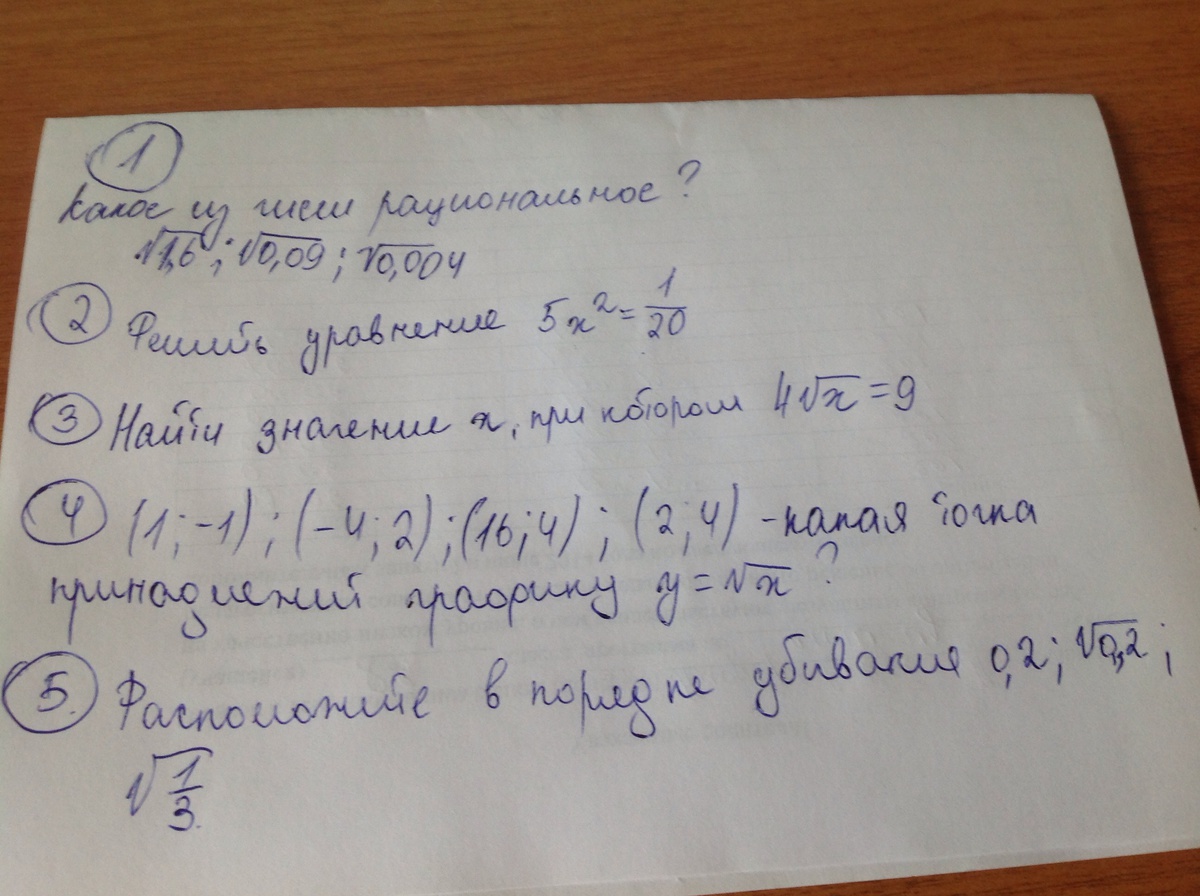 1
Какое из чисел рациональное?
√1,6; √0,09; √0,004
2 Решить уравнение 5x² = 1/20
3 Найти значение x, при котором 4√x = 9
4 (1;-1); (-4;2); (16;4); (2;4) - какая точка
принадлежит графику y = √x ?
5. Расположите в порядке убивания 0,2; √0,2;
√1/3.